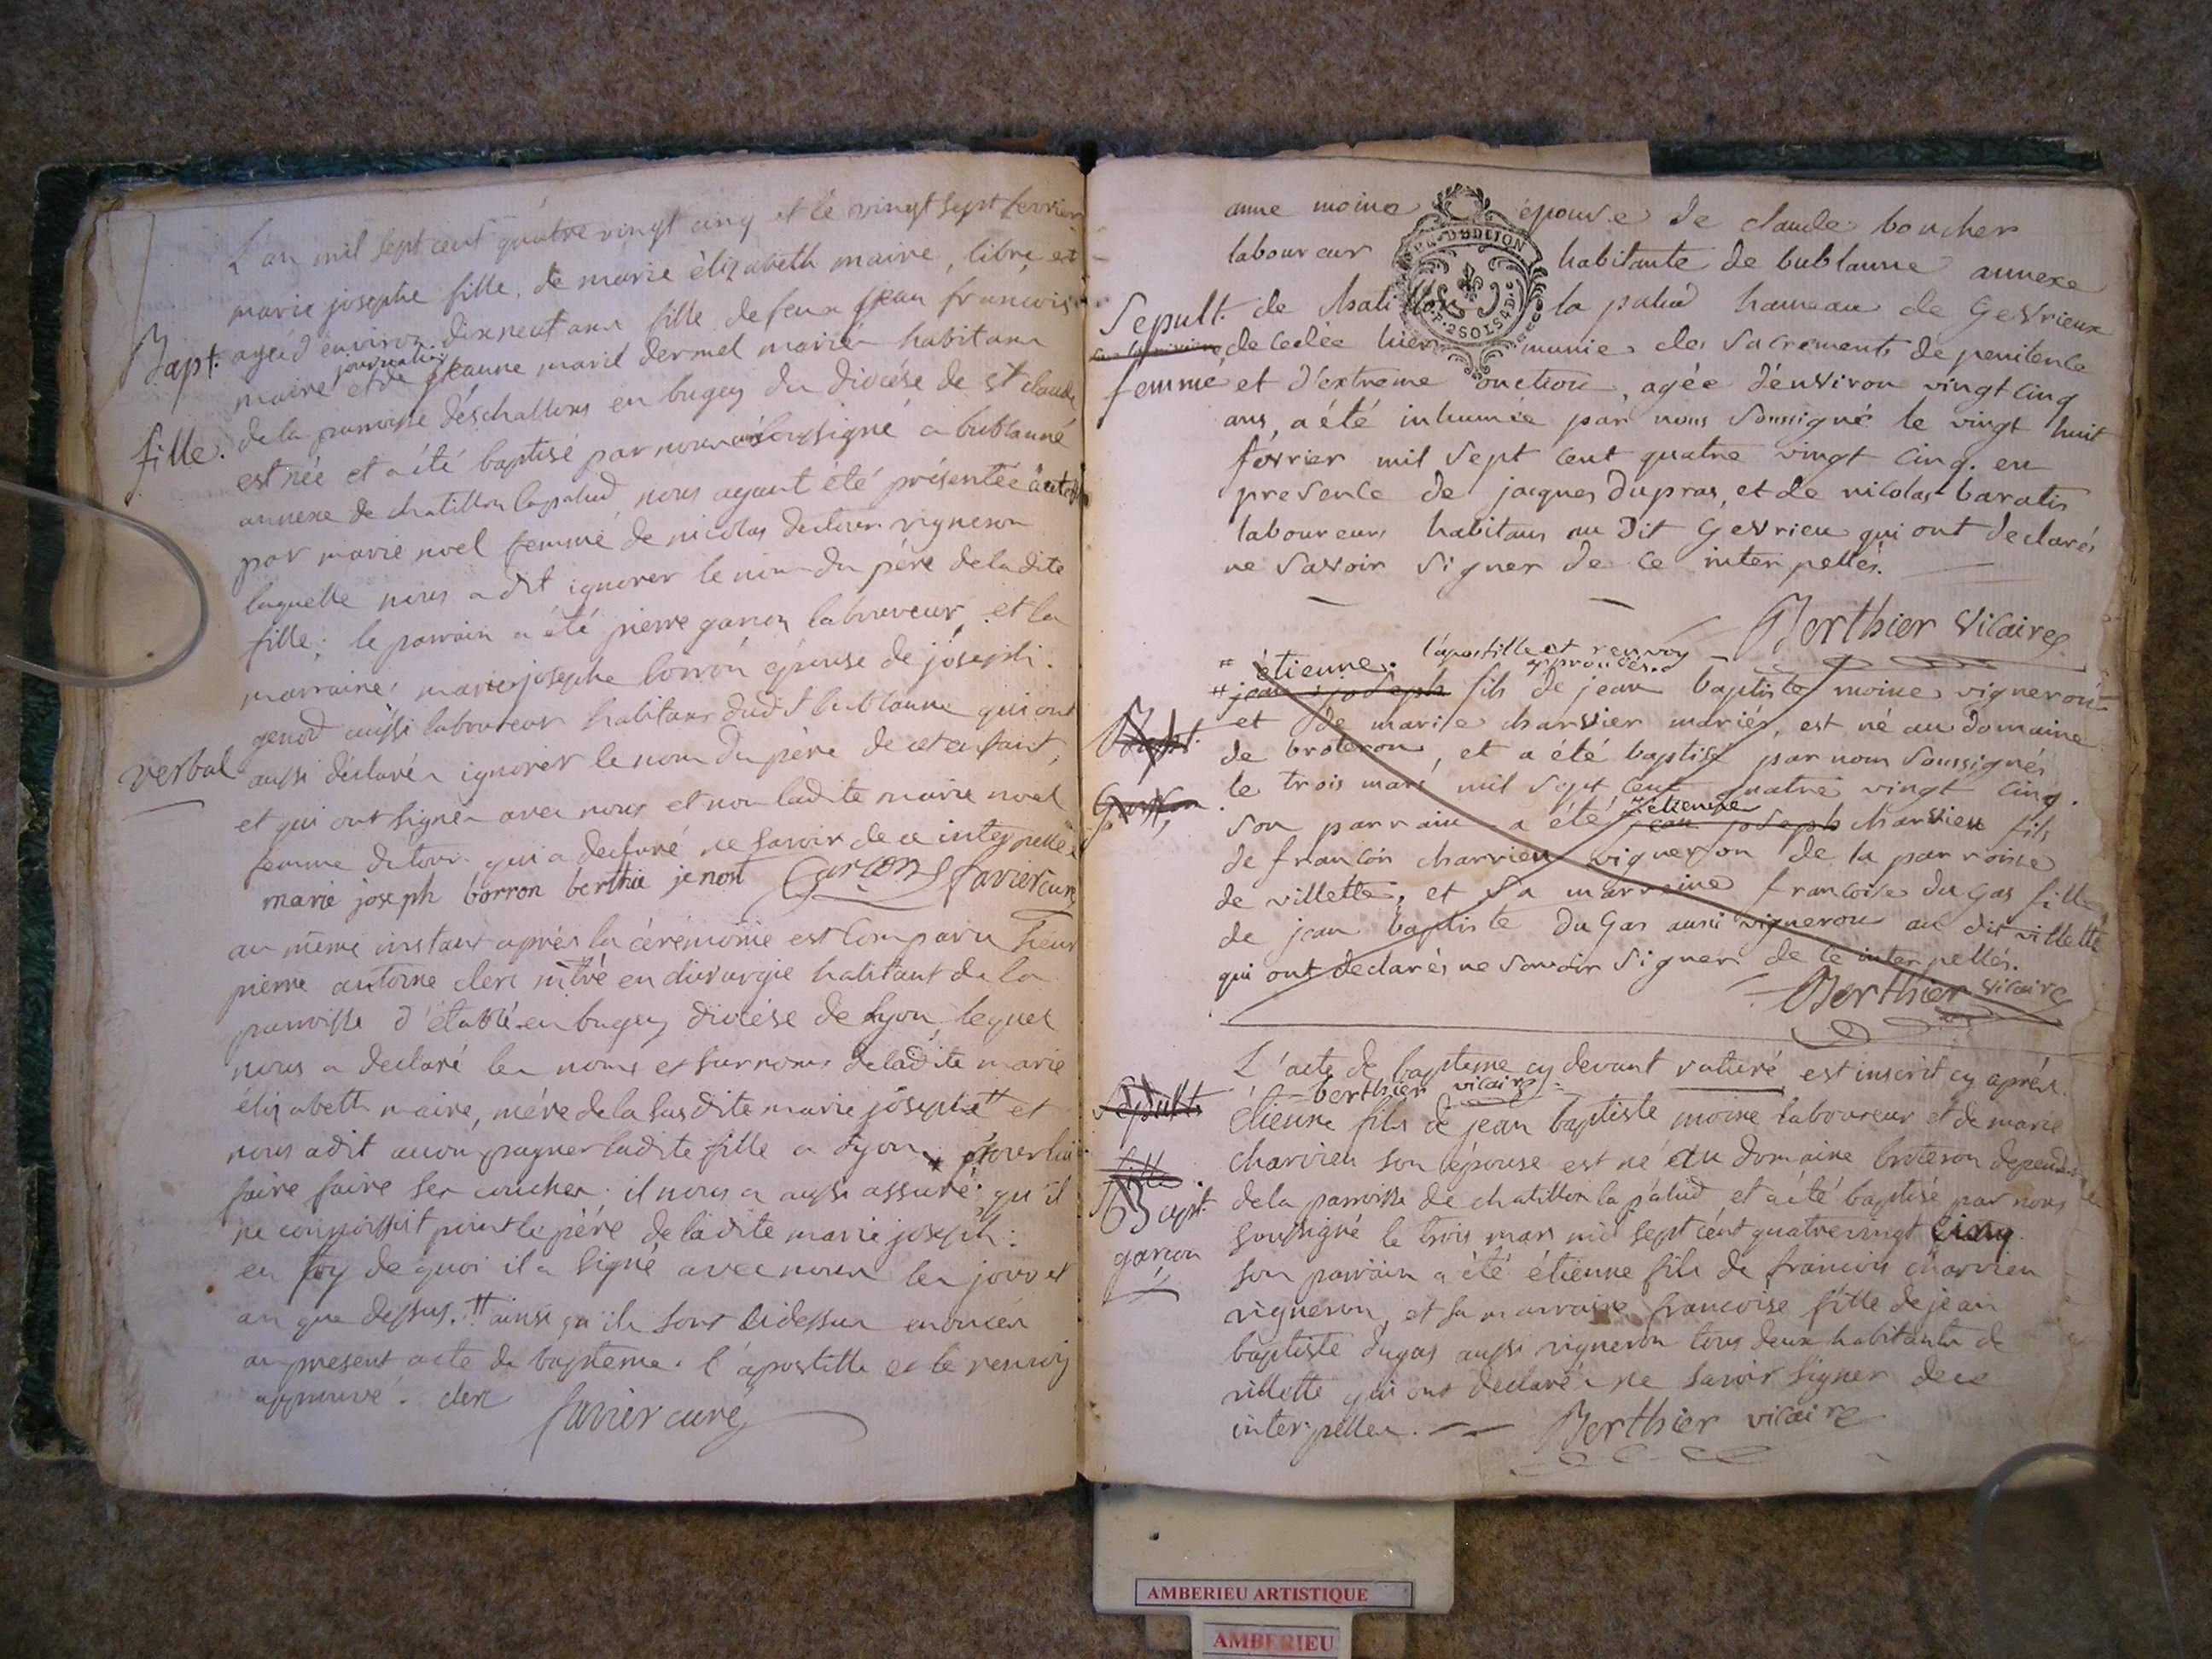 L'an mil sept cent quatre vingt cinq et le vingt sept fevrier
marie josephe fille de marie élizabeth maire, libre et
Bapt. agéé d'environ dixneuf ans fille de feux jean francois
journalier
maire et de jeanne marie dermel mariés habitans
de la parroisse d'éschallons en bugey du diocése de st claude
fille. est née et a été baptisé par nous curé soussigné a bublanne
annexe de chatillon lapalud, nous ayant été présentée
par marie noel femme de nicolas detour vigneron
laquelle nous a dit ignorer le nom du pére de la dite
fille; le parrain a été pierre garçon laboureur, et la
marraine, marie josephe borron épouse de joseph
genod aussi laboureur habitans dudt bublanne qui ont
verbal aussi déclarés ignorer le nom du pére de cet enfant,
et qui ont signés avec nous et non ladite marie noel
femme detour qui a declaré ne savoir de ce interpellée
marie joseph borron berthié jenost Garçon favier curé
au même instant aprés la cérémonie est comparu sieur
pierre antoine clerc mtre en chirurgie habitant de la
parroisse d'étable en bugey diocése de Lyon, lequel
nous a declaré les noms et surnoms de ladite marie
élizabeth maire, mére de la susdite marie josephe # et
nous a dit accompagner ladite fille a Lyon pour lui
faire faire ses couches; il nous a aussi assuré qu'il
ne connoissoit point le pére de ladite marie joseph:
en foy de quoi il a signé avec nous les jour et
an que dessus. # ainsi qu'ils sont cidessus enoncés
au present acte de baptême. l'apostille et le renvoy
approuvé. clerc favier curé
anne moine épouse de claude boucher
laboureur habitante de bublanne annexe
DIJON
2 SOLS 4 D
Sepult. de chatillon la palud hameau de Gevrieux
decedée hier munie des sacrements de penitence
femme et d'extreme onction, agée d'environ vingt cinq
ans, a été inhumée par nous soussigné le vingt huit
fevrier mil sept cent quatre vingt cinq. en
presence de jacques dupras, et de nicolas baratis
laboureurs habitans au dit Gevrieu qui ont declarés
ne savoir signer de ce interpellés.
Berthier vicaire
étienne. l'apostille et renvoy approuvés.
jean joseph fils de jean baptiste moine vigneron
et de marie charvier mariés, est né au domaine
Bapt. de broteron, et a été baptisé par nous soussignés
le trois mars mil sept cent quatre vingt cinq.
Garçon étienne
son parrain a été jean joseph charvieu fils
de françois charvieu vigneron de la parroisse
de villette, et sa marraine françoise du gas fille
de jean baptiste du Gas aussi vigneron au dit villette
qui ont declarés ne savoir signer de ce interpellés.
Berthier vicaire
L'acte de baptême cy devant raturé est inscrit cy aprés.
berthier vicaire
Sepult. étienne fils de jean baptiste moine laboureur et de marie
fille. charvieu son épouse est né au domaine broteron dependant
Bapt. de la parroisse de chatillon la palud, et a été baptisé par nous
garçon soussigné le trois mars mil sept cent quatre vingt cinq.
son parrain a été étienne fils de francois charvieu
vigneron, et sa marraine francoise fille de jean
baptiste dugas aussi vigneron tous deux habitants de
villette qui ont declarés ne savoir signer de ce
interpellés. Berthier vicaire
AMBERIEU ARTISTIQUE
AMBERIEU